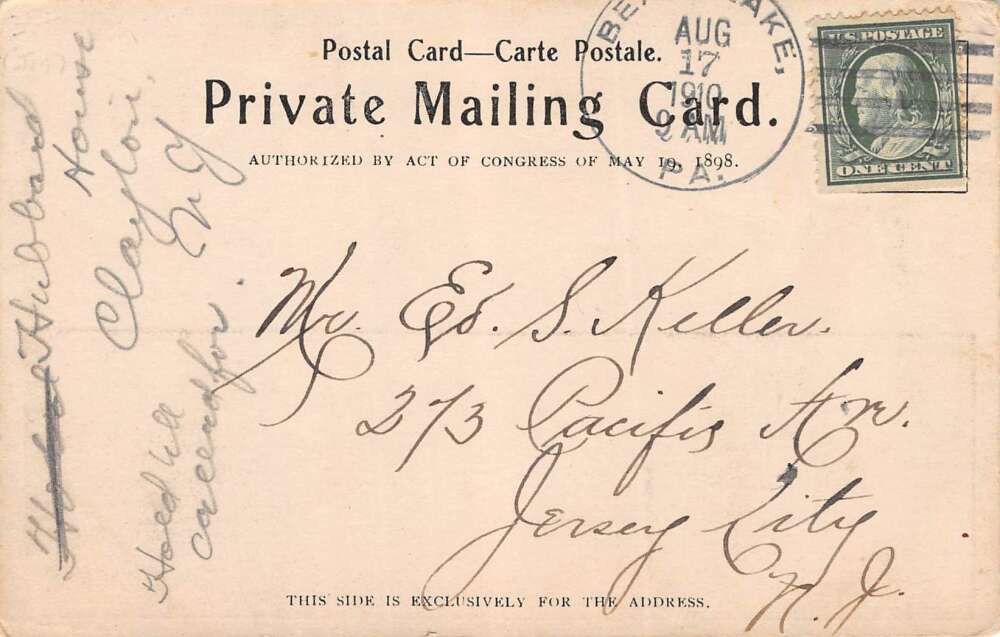 Postal Card—Carte Postale.
Private Mailing Card.
AUTHORIZED BY ACT OF CONGRESS OF MAY 19, 1898.
LAKE,
AUG
17
1910
9 AM
PA.
U.S. POSTAGE
ONE CENT
Mr. Ed. S. Keller.
273 Pacific Av.
Jersey City
N. J.
Hubbard
House
Clayton,
N Y
Hoed till
caceed for.
THIS SIDE IS EXCLUSIVELY FOR THE ADDRESS.